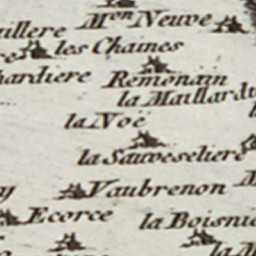 M.on Neuve
les Chaines
Remonain
la Maillard
la Noé
la Sauveseliere
Vaubrenon
Ecorce
la Boisni